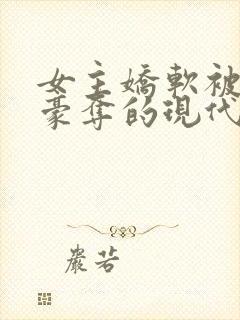 女主嬌軟被
豪奪的現代
嚴若